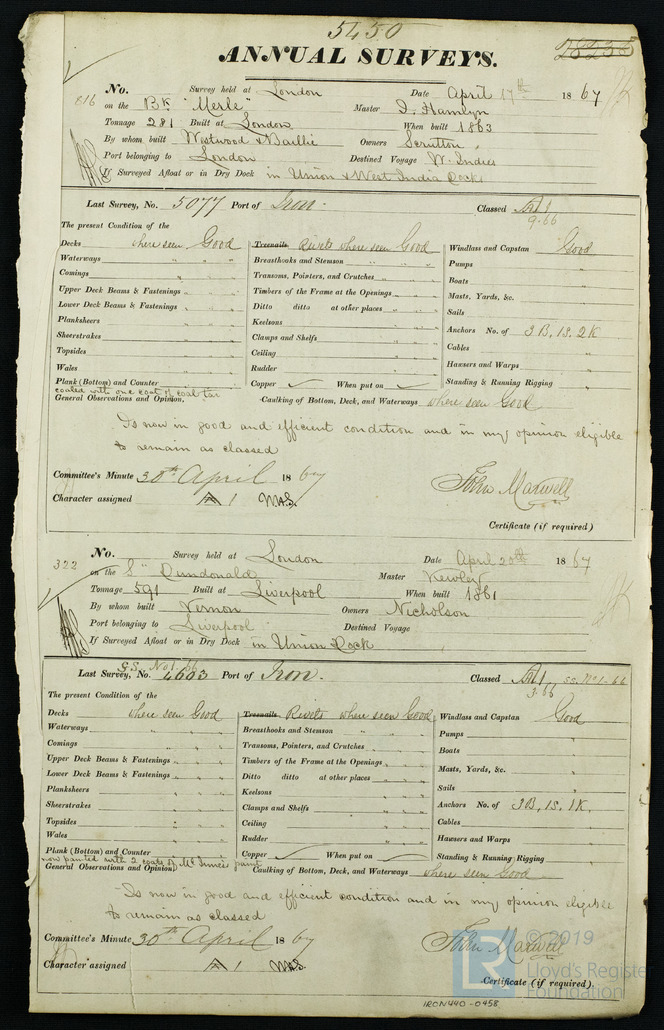 5450
28236
ANNUAL SURVEYS.
816
No. Survey held at London Date April 17th 1867
on the Bk "Merle" Master J. Hamlyn
Tonnage 281 Built at London When built 1863
By whom built Westwood & Baillie Owners Scrutton
Port belonging to London Destined Voyage W. Indies
If Surveyed Afloat or in Dry Dock in Union & West India Docks
Last Survey, No. 5077 Port of Iron. Classed A 1
9.66
The present Condition of the
Decks where seen Good
Waterways " " "
Comings " " "
Upper Deck Beams & Fastenings " " "
Lower Deck Beams & Fastenings " " "
Planksheers " " "
Sheerstrakes " " "
Topsides " " "
Wales " " "
Plank (Bottom) and Counter
coated with one coat of coal tar
General Observations and Opinion,
Treenails Rivets where seen Good
Breasthooks and Stemson " "
Transoms, Pointers, and Crutches " "
Timbers of the Frame at the Openings " "
Ditto ditto at other places " "
Keelsons " "
Clamps and Shelfs " "
Ceiling " "
Rudder " "
Copper When put on
Caulking of Bottom, Deck, and Waterways where seen Good
Windlass and Capstan Good
Pumps "
Boats "
Masts, Yards, &c. "
Sails "
Anchors No. of 3B, 1S. 2K
Cables "
Hawsers and Warps "
Standing & Running Rigging "
Is now in good and efficient condition and in my opinion eligible
to remain as classed
Committee's Minute 30th April 1867
John Maxwell
Character assigned A 1
Certificate (if required)
322
No. Survey held at London Date April 20th 1867
on the S" Dundonald Master Kewley
Tonnage 591 Built at Liverpool When built 1861
By whom built Vernon Owners Nicholson
Port belonging to Liverpool Destined Voyage
If Surveyed Afloat or in Dry Dock in Union Dock
S.S. No 1-66
Last Survey, No. 4603 Port of Iron. Classed A 1 SS. No 1-66
3.66
The present Condition of the
Decks where seen Good
Waterways " " "
Comings " " "
Upper Deck Beams & Fastenings " " "
Lower Deck Beams & Fastenings " " "
Planksheers " " "
Sheerstrakes " " "
Topsides " " "
Wales " " "
Plank (Bottom) and Counter
now painted with 2 coats of McInnes' paint
General Observations and Opinion,
Treenails Rivets where seen Good
Breasthooks and Stemson " "
Transoms, Pointers, and Crutches " "
Timbers of the Frame at the Openings " "
Ditto ditto at other places " "
Keelsons " "
Clamps and Shelfs " "
Ceiling " "
Rudder " "
Copper When put on
Caulking of Bottom, Deck, and Waterways where seen Good
Windlass and Capstan Good
Pumps "
Boats "
Masts, Yards, &c. "
Sails "
Anchors No. of 3B, 1S. 1K.
Cables "
Hawsers and Warps "
Standing & Running Rigging "
Is now in good and efficient condition and in my opinion eligible
to remain as classed
Committee's Minute 30th April 1867
John Maxwell
Character assigned A 1
Certificate (if required).
© 2019
LR
Lloyd's Register
Foundation
IRON440-0458